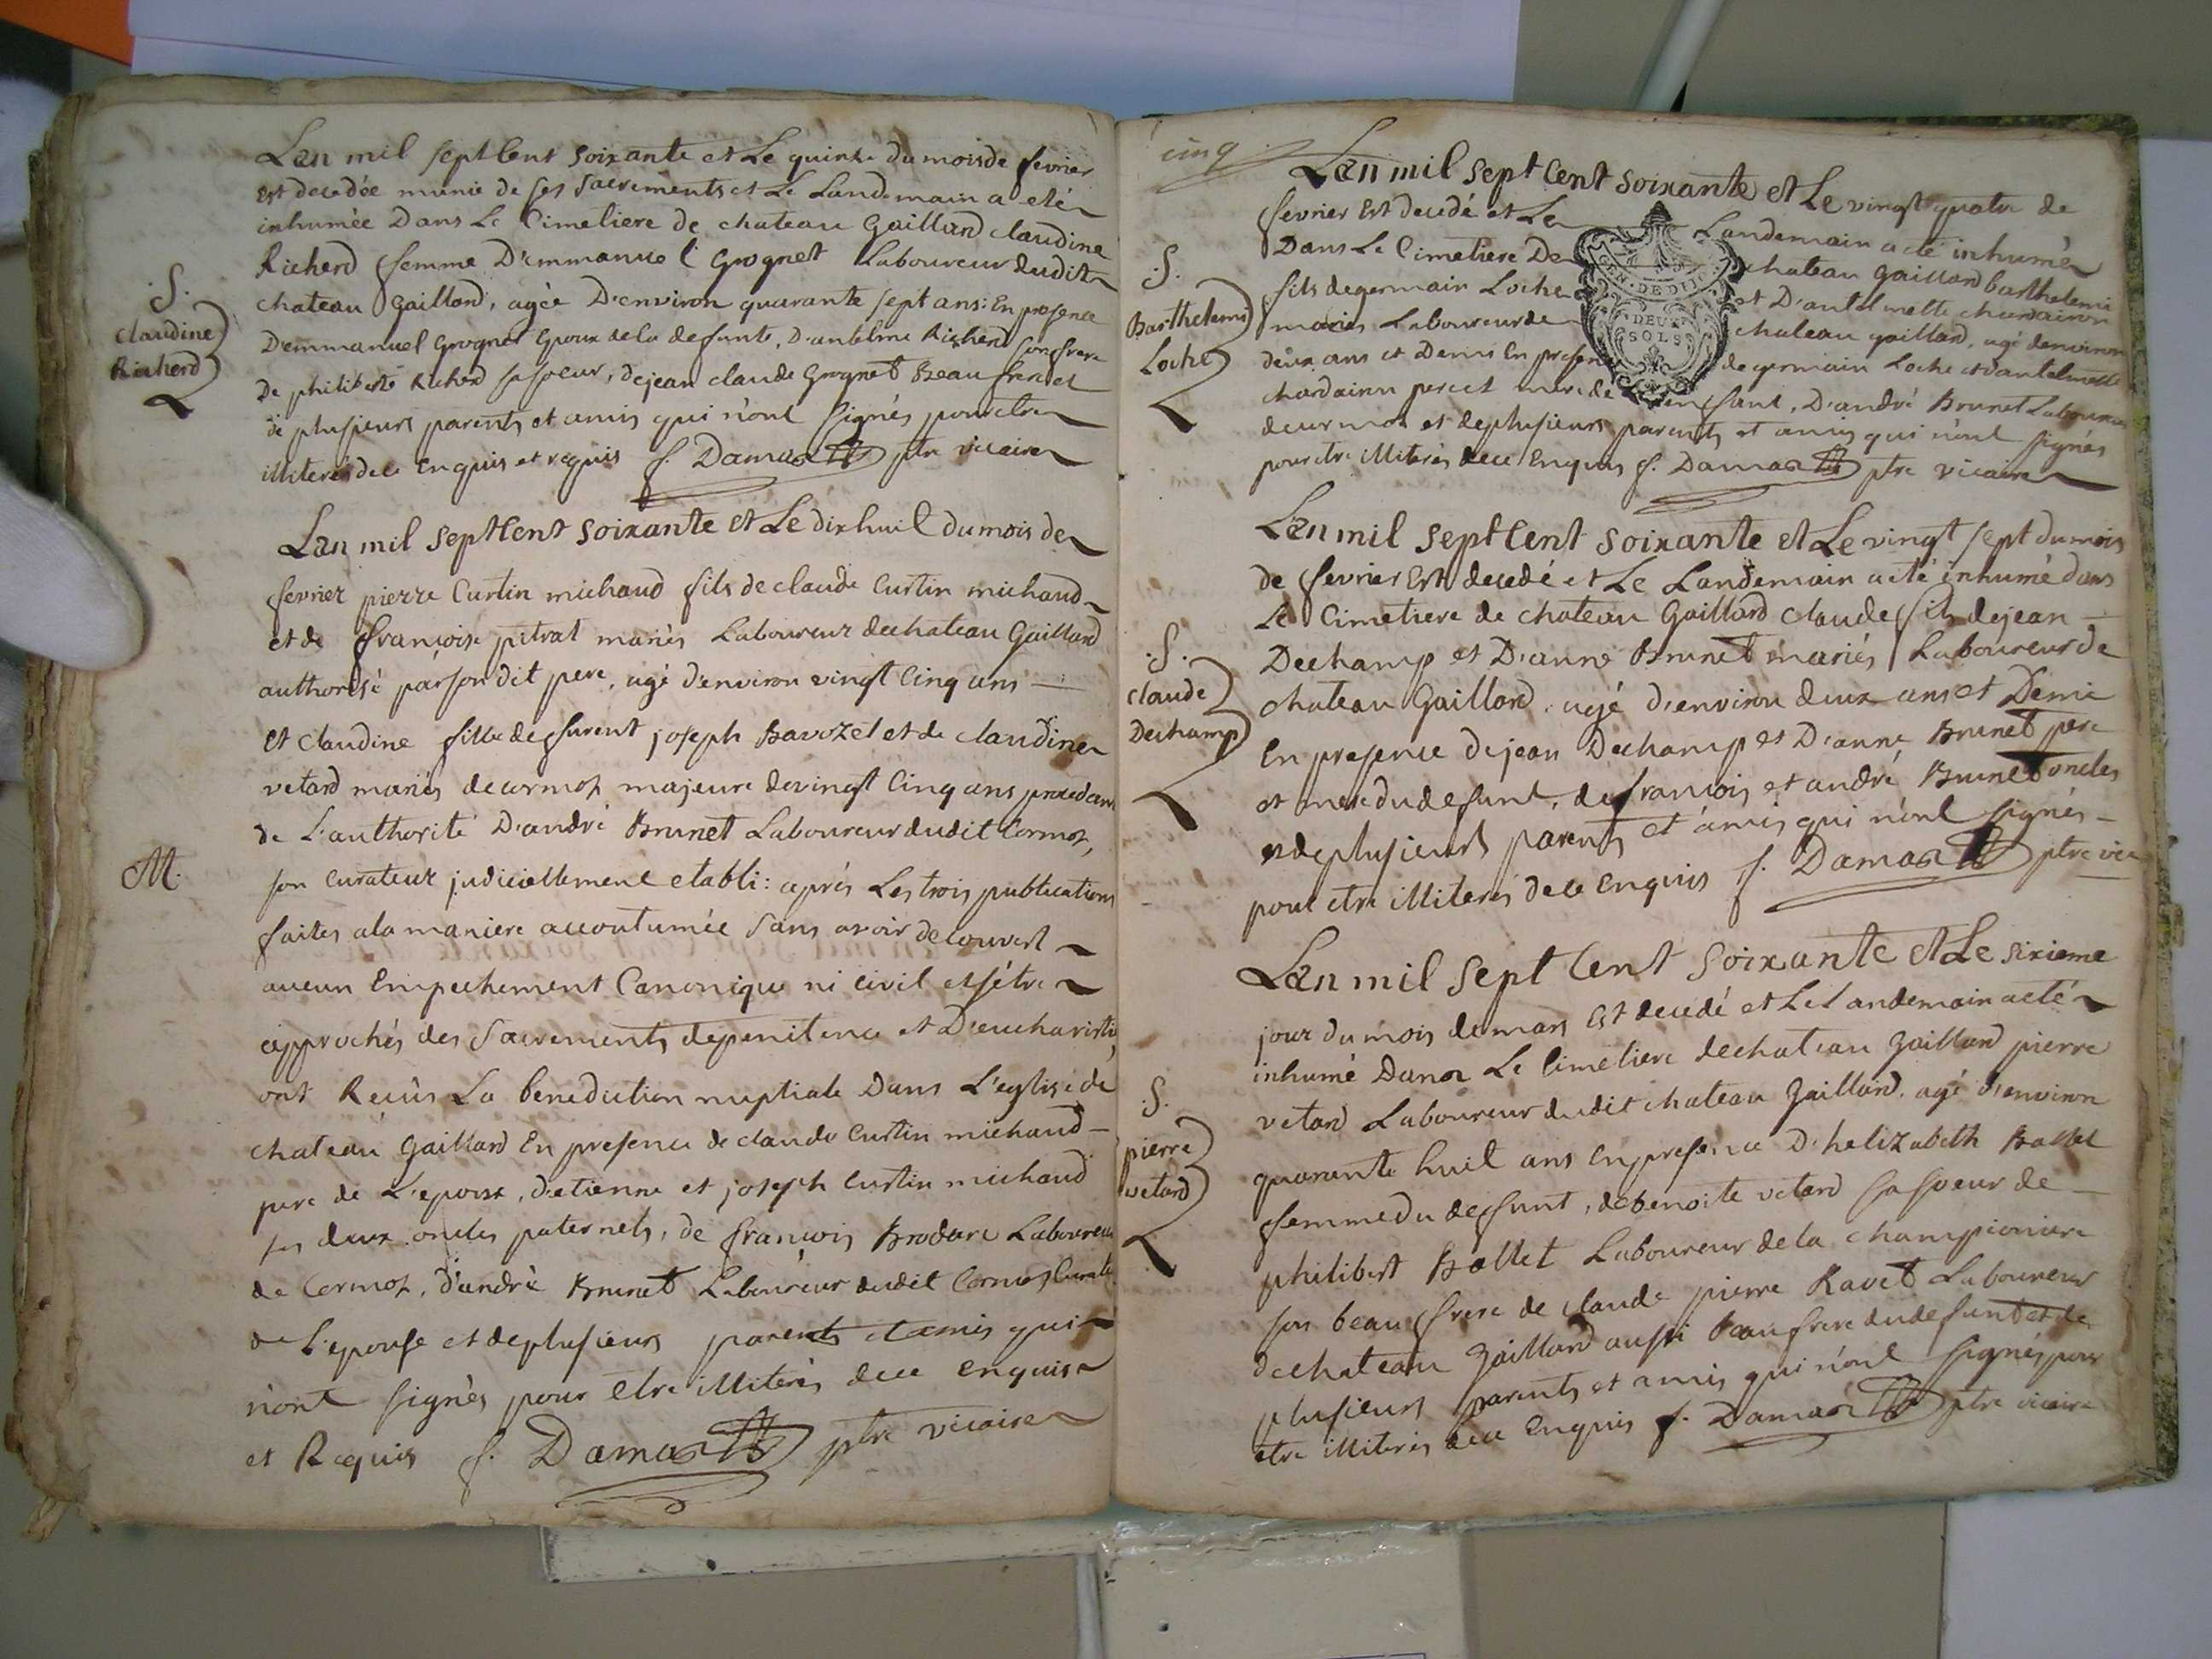 Lan mil sept Cent soixante et Le quinze du mois de fevrier
est decedée munie de ses sacrements et Le Landemain a eté
inhumée Dans Le Cimetiere de chateau Gaillard claudine
Richerd femme D'emmanuel Grognet Laboureur dudit
chateau Gaillard, agée D'environ quarante sept ans: En presence
D'emmanuel Grognet Epoux de la defunte, D'antelme Richerd son frere
De philiberte Richerd sa soeur, de jean claude Grognet Beau frere et
de plusieurs parents et amis qui n'ont signés pour etre
illiterés de ce Enquis et requis f. Damas ptre vicaire
.S.
claudine
Richerd
Lan mil sept Cent soixante et Le dix huit du mois de
fevrier pierre Curtin michaud fils de claude Curtin michaud
et de françoise pitrat mariés Laboureur de chateau Gaillard
authorisé par son dit pere, agé d'environ vingt Cinq ans
et claudine fille de furent joseph Bavozet et de claudine
vetard mariés de cormoz majeure de vingt Cinq ans procedant
de L'authorité D'andré Brunet Laboureur dudit Cormoz,
son Curateur judiciellement etabli: aprés Les trois publications
faites a la maniere accoutumée sans avoir decouvert
aucun Empechement Canonique ni civil et s'étre
approchés des sacrements de penitence et D'eucharistie,
ont Reçûs La benediction nuptiale Dans L'eglise de
chateau Gaillard En presence de claude Curtin michaud
pere de L'epoux, d'etienne et joseph Curtin michaud
ses deux oncles paternels, de françois Brodare Laboureur
de Cormoz, d'andré Brunet Laboureur dudit Cormoz Curateur
de L'epouse et de plusieurs parents et amis qui
n'ont signés pour etre illiterés de ce enquis
et Requis f. Damas ptre vicaire
M.
cinq
Lan mil sept Cent soixante et Le vingt quatre de
fevrier Est decedé et Le Landemain a eté inhumé
Dans Le Cimetiere De chateau Gaillard barthelemi
fils de germain Loche et D'antelmette chardairon
mariés Laboureur de chateau gaillard, agé denviron
deux ans et Demi En presence de germain Loche et dantelmette
chardairon pere et mere de L'enfant, D'andré Brunet Laboureur
de cormoz et de plusieurs parents et amis qui n'ont signés
pour etre illiterés de ce Enquis f. Damas ptre vicaire
GEN. DE DIJON
DEUX
SOLS
.S.
Barthelemi
Loche
Lan mil sept Cent soixante et Le vingt sept du mois
de fevrier Est decedé et Le Landemain a eté inhumé dans
Le Cimetiere de chateau Gaillard claude fils de jean
Dechamp et D'anne Brunet mariés Laboureur de
chateau Gaillard, agé d'environ deux ans et Demi
En presence de jean Dechamp et D'anne Brunet pere
et mere du defunt, de françois et andré Brunet oncles
et de plusieurs parents et amis qui n'ont signés
pour etre illiterés de ce enquis f. Damas ptre vic
.S.
claude
Dechamp
Lan mil sept Cent soixante et Le sixieme
jour du mois de mars Est decedé et Le Landemain a eté
inhumé Dans Le Cimetiere de chateau Gaillard pierre
vetard Laboureur dudit chateau Gaillard, agé d'environ
quarante huit ans En presence D'helizabeth Ballet
femme du defunt, de benoite vetard sa soeur de
philibert Ballet Laboureur de la championiere
son beau frere de claude pierre Ravet Laboureur
de chateau Gaillard aussi beau frere du defunt et de
plusieurs parents et amis qui n'ont signés pour
etre illiterés de ce Enquis f. Damas ptre vicaire
.S.
pierre
vetard